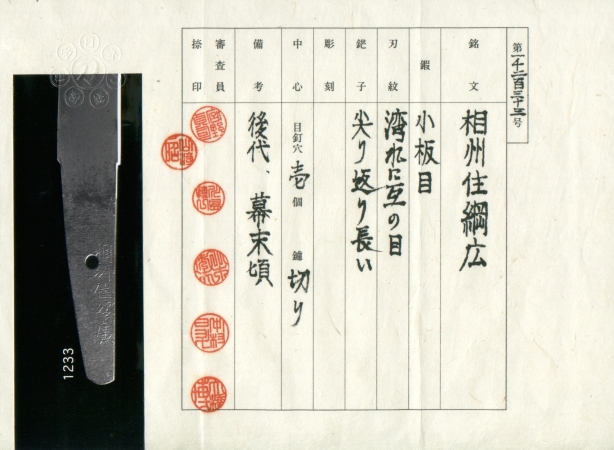 第一千二百三十三号
銘文
相州住綱広
鍜
小板目
刃紋
湾れに互の目
鋩子
尖り返り長い
彫刻
中心
目釘穴 壱個 鑢 切り
備考
後代、幕末頃
審査員
捺印
1233